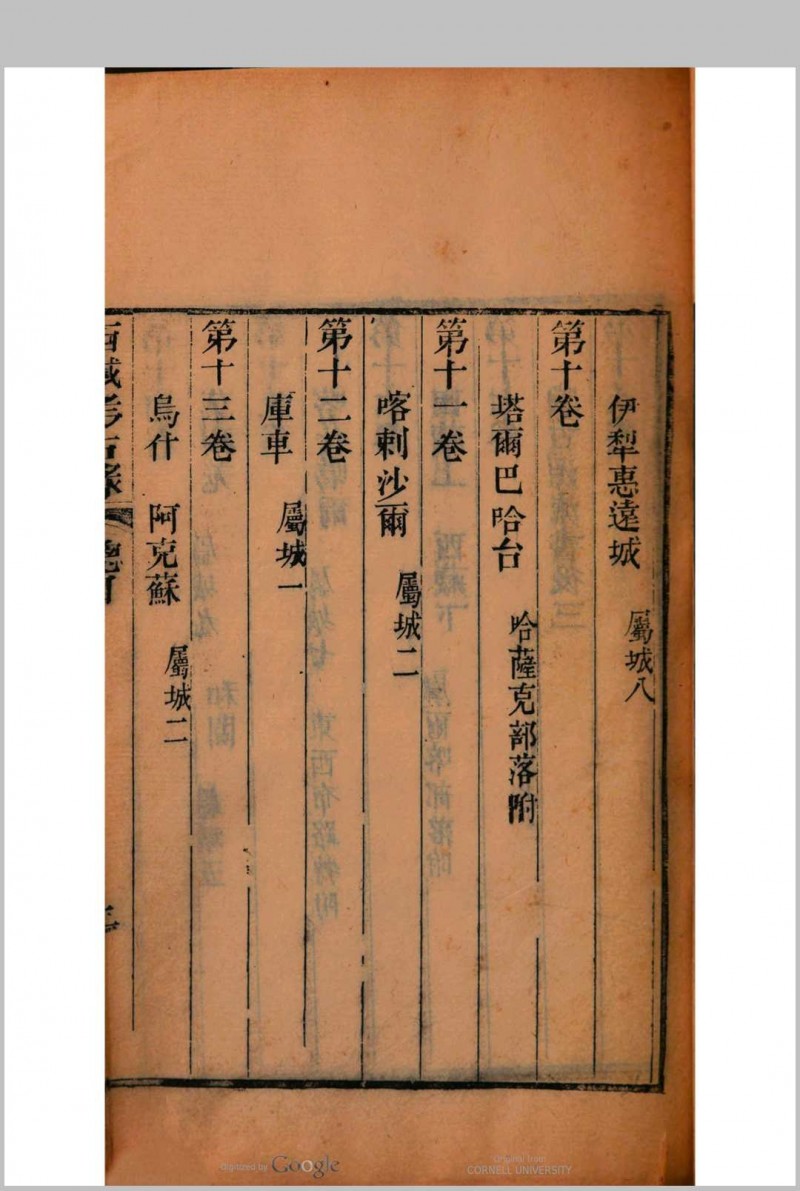 伊犁惠遠城 屬城八
第十卷
塔爾巴哈台 哈薩克部落附
第十一卷
喀剌沙爾 屬城二
第十二卷
庫車 屬城一
第十三卷
烏什 阿克蘇 屬城二
西域考古錄 總目
Digitized by Google
Original from
CORNELL UNIVERSITY